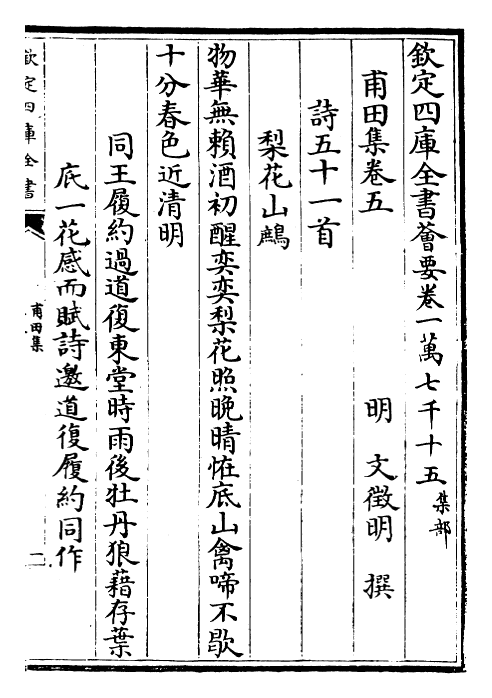 欽定四庫全書薈要卷一萬七千十五 集部
甫田集卷五 明 文徵明 撰
詩五十一首
梨花山鷓
物華無賴酒初醒奕奕梨花照晚晴恠底山禽啼不歇
十分春色近清明
同王履約過道復東堂時雨後牡丹狼藉存葉
底一花感而賦詩邀道復履約同作
欽定四庫全書
甫田集